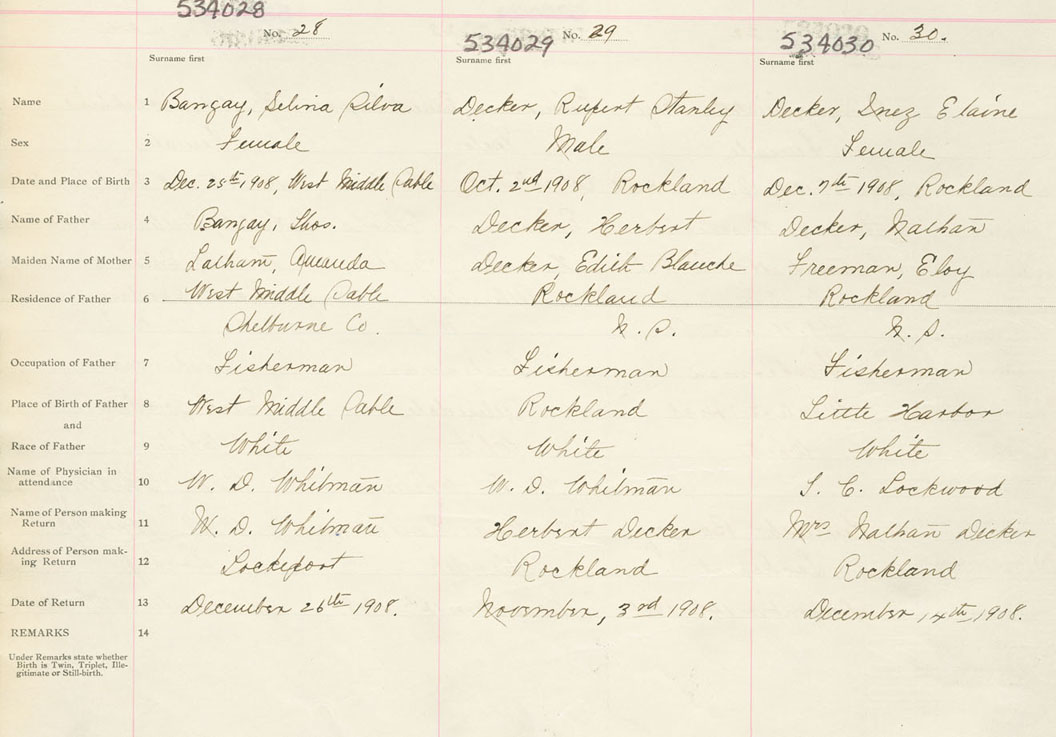 534028
No. 28
534029
No. 29
534030
No. 30.
Surname first
Surname first
Surname first
Name 1 Bangay, Selina Silva Decker, Rupert Stanley Decker, Inez Elaine
Sex 2 Female Male Female
Date and Place of Birth 3 Dec. 25th 1908, West Middle Sable Oct. 2nd 1908, Rockland Dec. 7th 1908, Rockland
Name of Father 4 Bangay, Thos. Decker, Herbert Decker, Nathan
Maiden Name of Mother 5 Latham, Amanda Decker, Edith Blanche Freeman, Eloy
Residence of Father 6 West Middle Sable Rockland Rockland
Shelburne Co. N. S. N. S.
Occupation of Father 7 Fisherman Fisherman Fisherman
Place of Birth of Father 8 West Middle Sable Rockland Little Harbor
and
Race of Father 9 White White White
Name of Physician in
attendance 10 W. D. Whitman W. D. Whitman S. C. Lockwood
Name of Person making
Return 11 W. D. Whitman Herbert Decker Mrs Nathan Decker
Address of Person mak-
ing Return 12 Lockeport Rockland Rockland
Date of Return 13 December 26th 1908. November, 3rd 1908. December, 14th 1908.
REMARKS 14
Under Remarks state whether
Birth is Twin, Triplet, Ille-
gitimate or Still-birth.